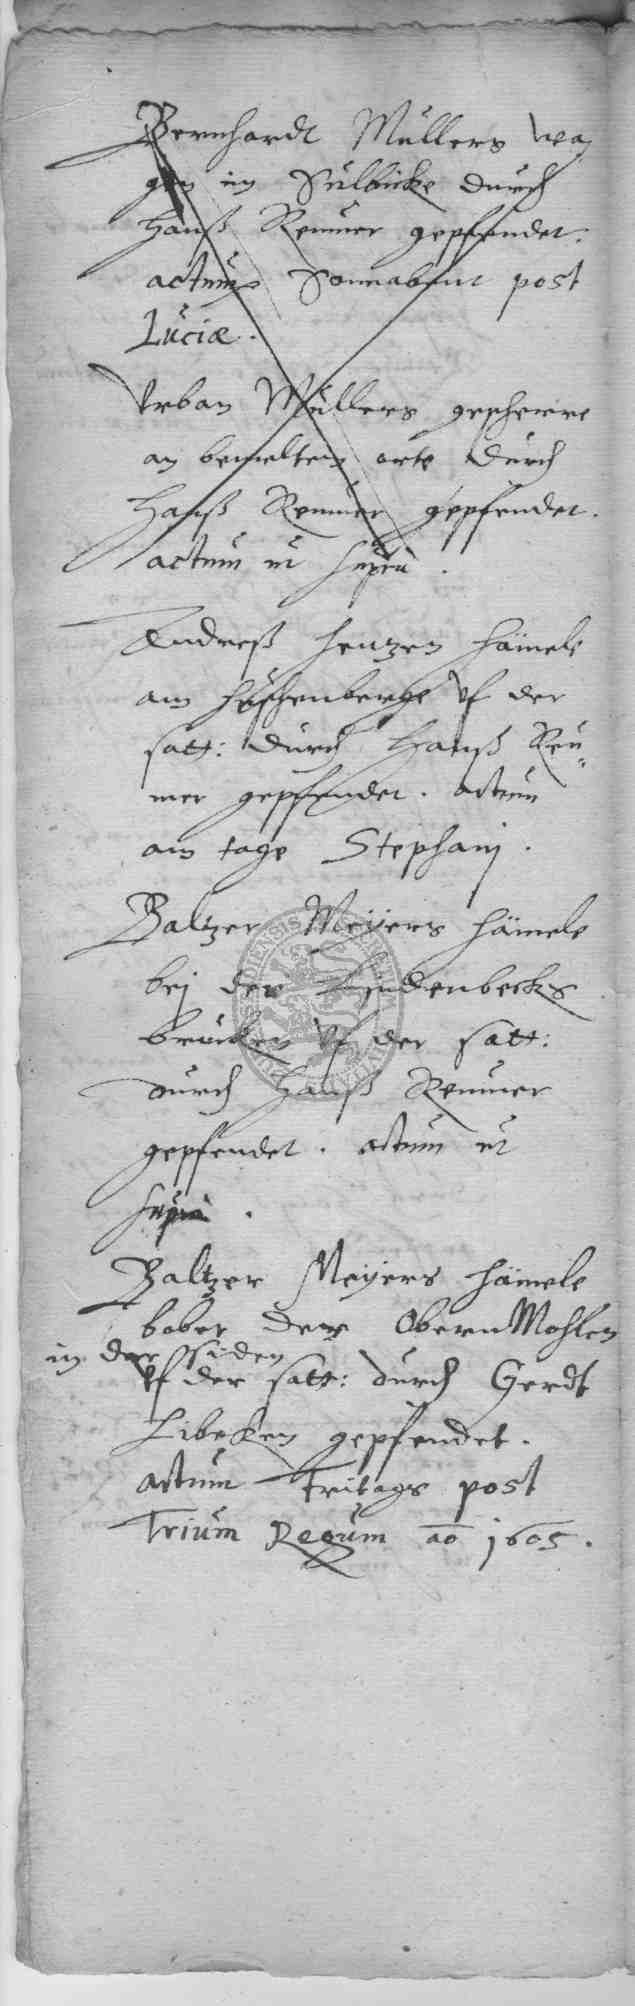 Bernhardt Müllers wa
gen im Sülbicke durch
Hanß Remmer gepfendet.
actum Sonnabent post
Luciæ.
Urban Müllers gescherre
an bemeltem orte durch
Hanß Remmer gepfendet.
actum ut supra.
Andreß Hentzen hämele
am uf der
satt: durch Hanß Rem
mer gepfendet. actum
am tage Stephanj.
Baltzer Meÿers hämele
bej der Lindenbecks
brücken uf der satt:
durch Hanß Remmer
gepfendet. actum ut
supra.
Baltzer Meÿers hämele
bober der Obern Mohlen
in der Siden
uf der satt: durch Gerdt
Libeken gepfendet.
actum Fritags post
Trium Regum ao 1605.